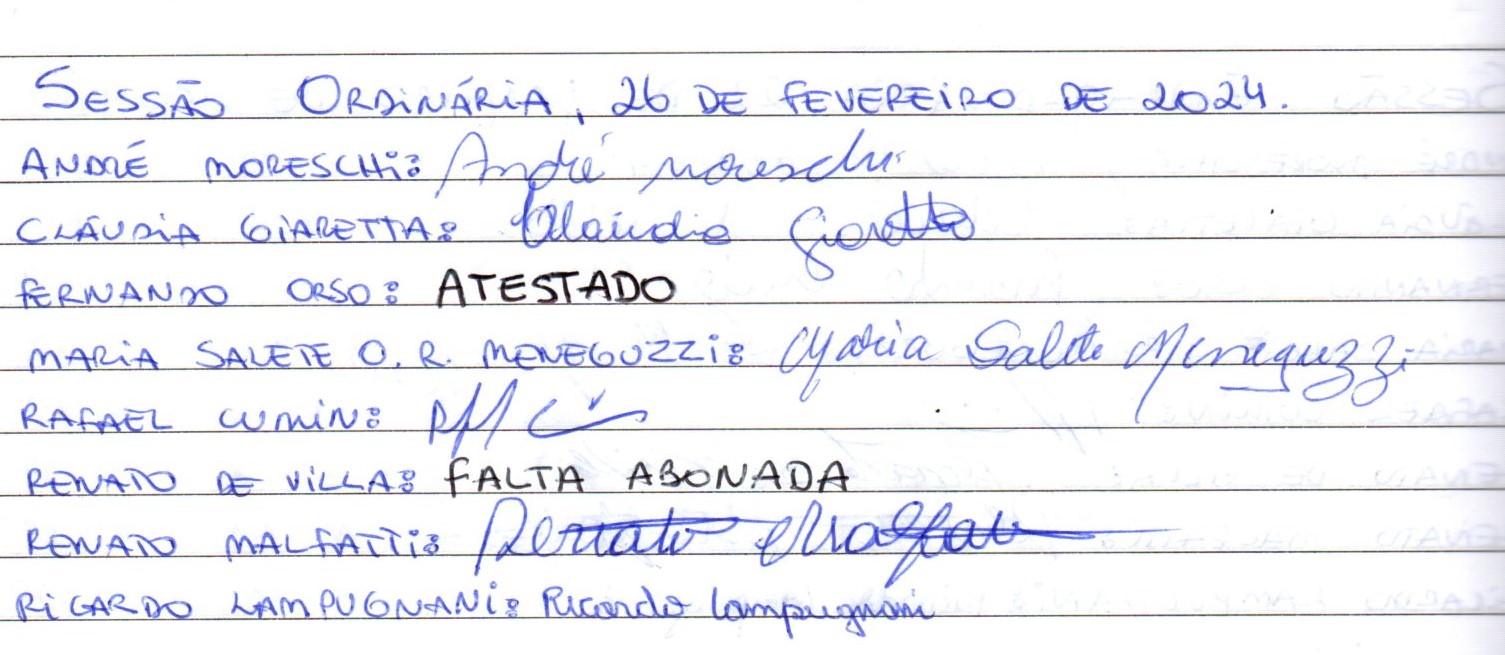 SESSÃO ORDINÁRIA, 26 DE FEVEREIRO DE 2024.
ANDRÉ MORESCHI: André Moreschi
CLÁUDIA GIARETTA: Claudia Giaretta
FERNANDO ORSO: ATESTADO
MARIA SALETE O. R. MENEGUZZI: Maria Salete Meneguzzi
RAFAEL CUMIN:
RENATO DE VILLA: FALTA ABONADA
RENATO MALFATTI: Renato Malfatti
RICARDO LAMPUGNANI: Ricardo Lampugnani